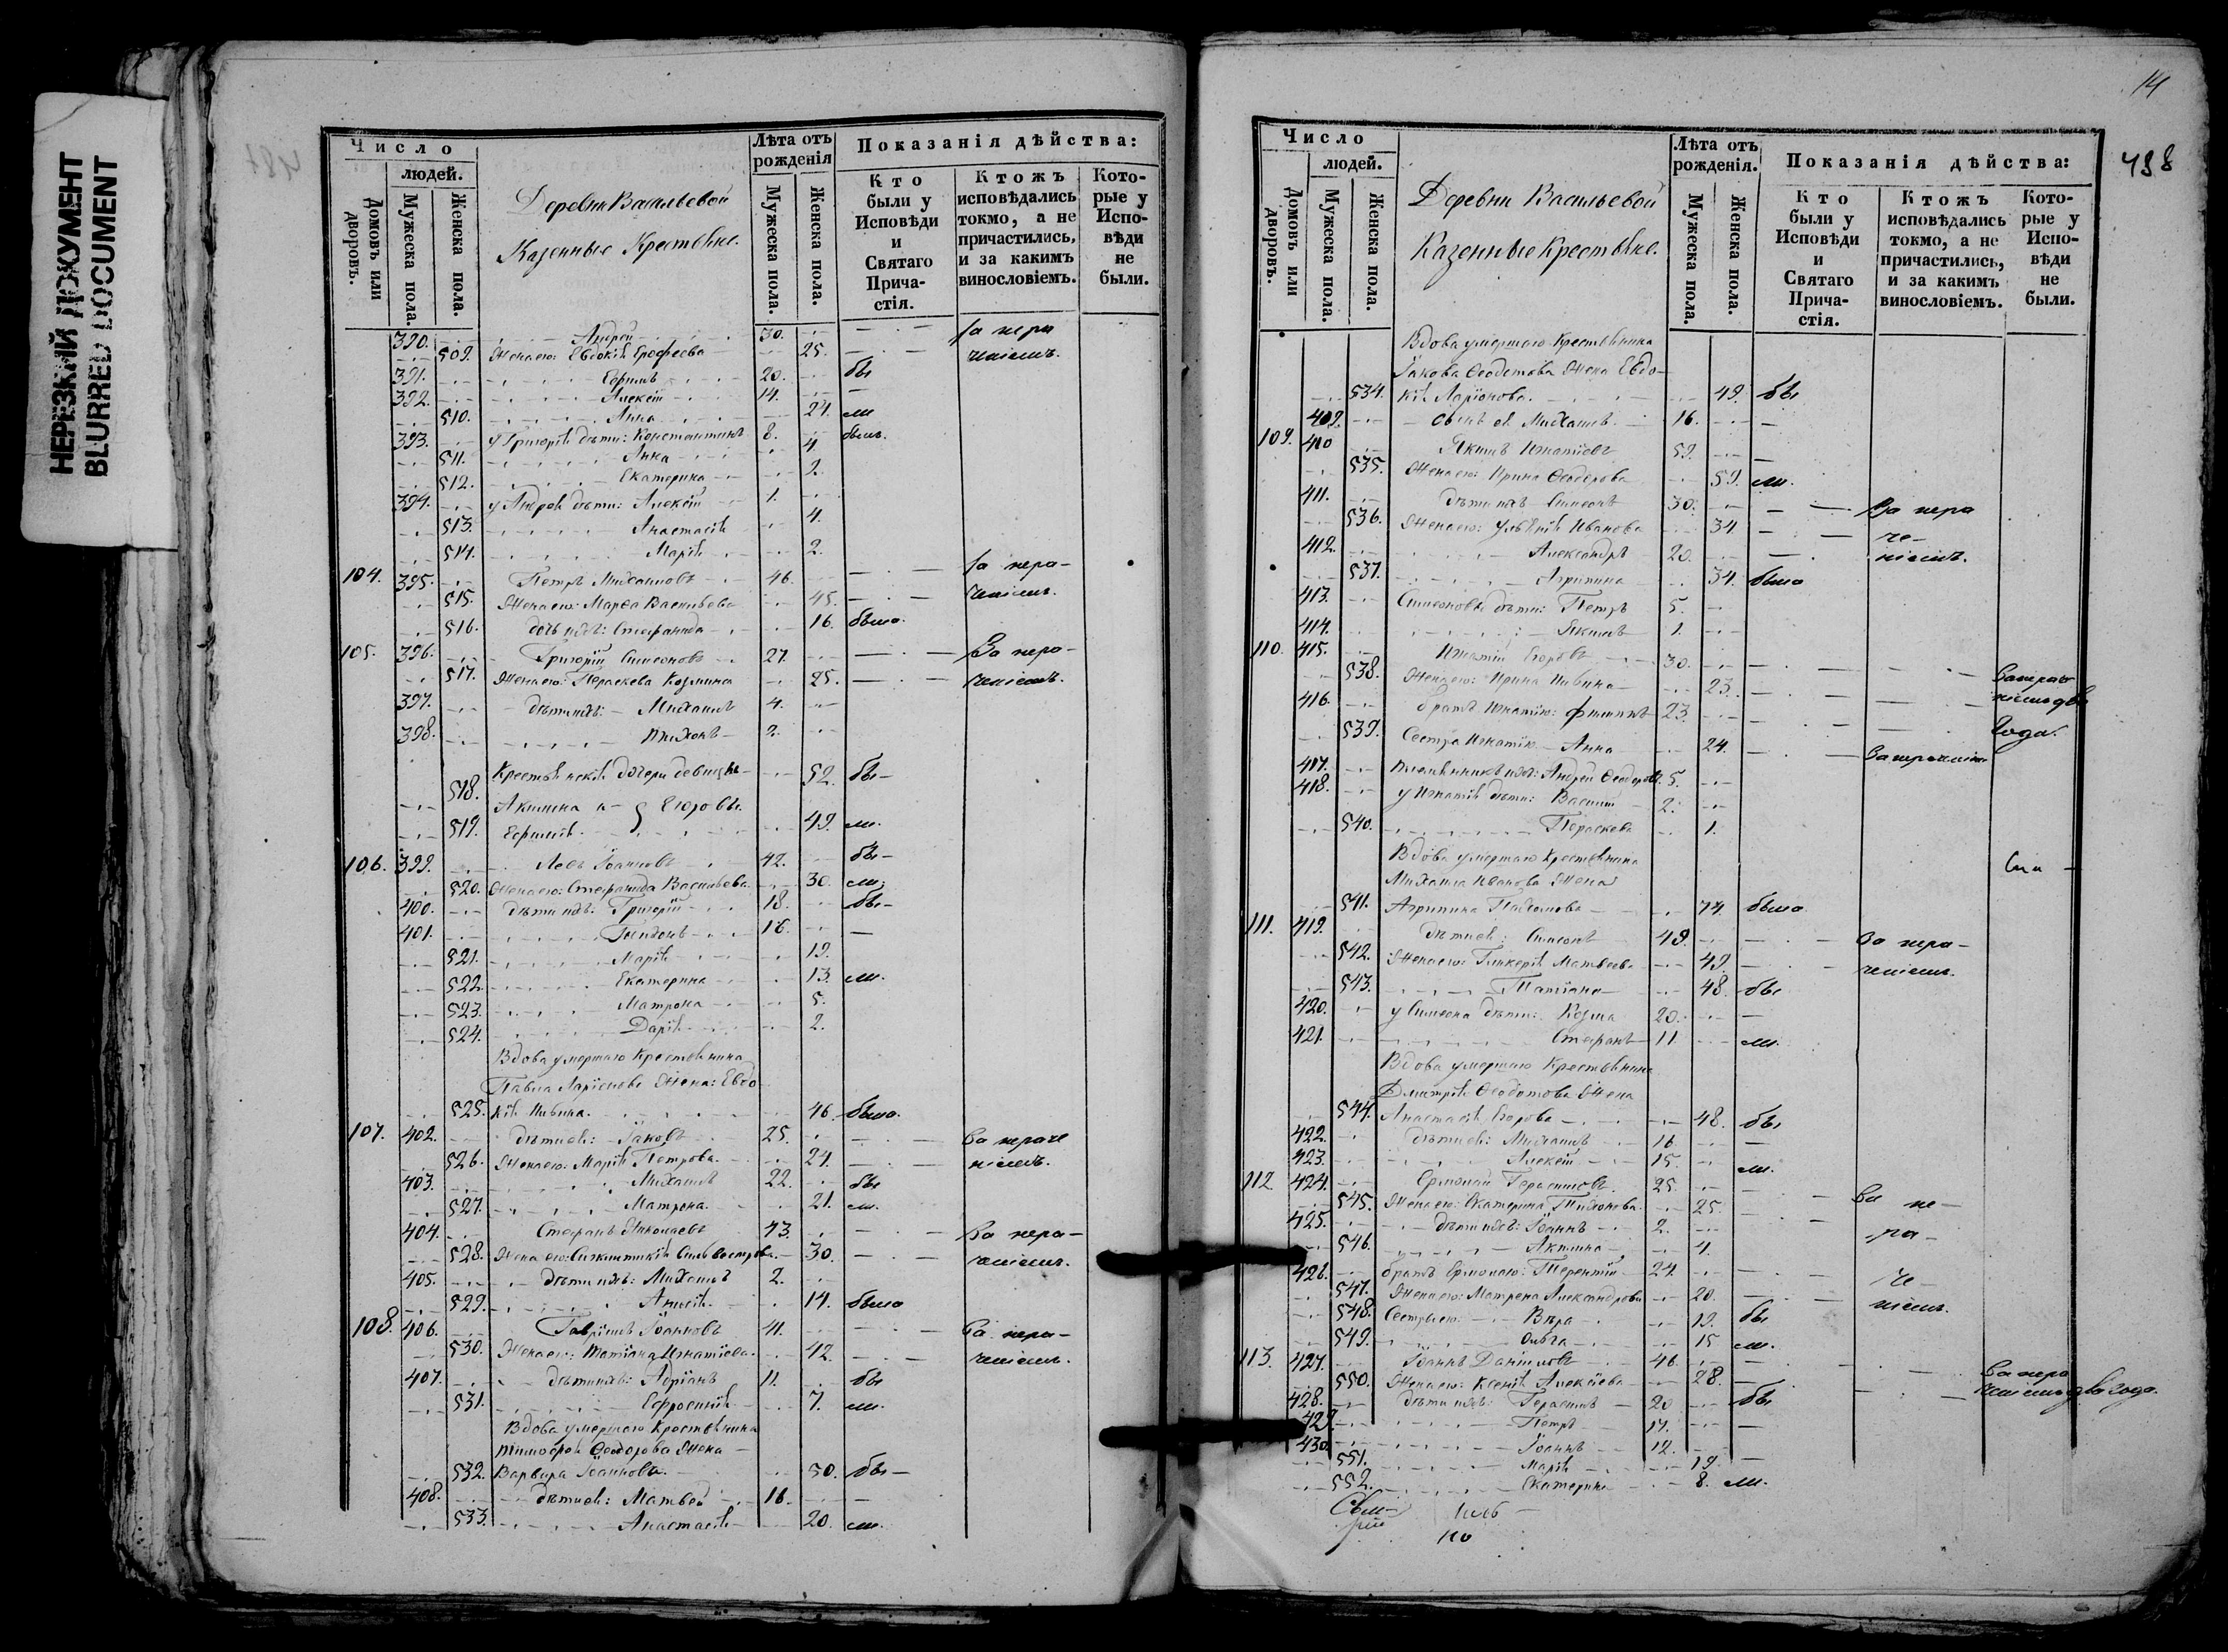 НЕРЕЗКИЙ ДОКУМЕНТ
BLURRED DOCUMENT
Число
людей.
Домовъ или дворовъ.
Мужеска пола.
Женска пола.
Деревни Васильевой
Казенные Крестьяне.
Лѣта отъ рожденія
Мужеска пола.
Женска пола.
Показанія дѣйства:
Кто были у Исповѣди и Святаго Причастія.
Ктожъ исповѣдались токмо, а не причастились, и за какимъ винословіемъ.
Которые у Исповѣди не были.
390. Андрей 30. За нера
509. Жена его: Евдокія Ерофеева 25. ченіемъ.
391. Ефимъ 20. бы
392. Алексѣй 14. —
510. Анна 24. ли
393. У Григорія дѣти: Константинъ 8. былъ.
511. Анна 4
512. Екатерина 2.
394. у Андрея дѣти: Алексѣй 1.
513. Анастасія 4.
514. Марія 2.
104. 395. Петръ Михаиловъ 46. За нера-
515. Жена его: Марѳа Васильева 45. ченіемъ.
516. дочь ихъ: Стефанида 16. была.
105. 396. Григорій Симеоновъ 27. За нера-
517. Жена его: Параскева Козмина 25. ченіемъ.
397. дѣти ихъ: Михаилъ 4.
398. Тихонъ 2.
Крестьянскія дочери девицы 52. бы-
518. Акилина и Егоровы
519. 49. ли.
106. 399. Левъ Іоанновъ 42. бы-
520. Жена его: Стефанида Васильева 30. ли;
400. дѣти ихъ: Григорій 18. бы-
401. 16. —
521. Марія 19.
522. Екатерина 13. ли.
523. Матрона 5.
524. Дарія 2.
Вдова умершаго Крестьянина
Павла Ларіонова Жена: Евдо
525. кія 46. была.
107. 402. дѣти ея: Іаковъ 25. За нераче
526. Жена его: Марія Петрова 24. ніемъ.
403. Михаилъ 22. бы
527. Матрона 21. ли.
404. Стефанъ Николаевъ 43. За нера-
528. Жена его: Синклитикія Сильвестрова 30. ченіемъ.
405. дѣти ихъ: Михаилъ 2.
529. 14. была
108. 406. Гавріилъ Іоанновъ 41. За нера-
530. Жена его: Татіана Игнатіева 42. ченіемъ.
407. дѣти ихъ: Адріанъ 11. бы
531. Евфросинія 7. ли.
Вдова умершаго Крестьянина
Тимоѳея Ѳеодорова Жена
532. Варвара Іоаннова 50. бы-
408. дѣти ея: Матвей 16. —
533. Анастасія 20. ли.
14
498
Число
людей.
Домовъ или дворовъ.
Мужеска пола.
Женска пола.
Деревни Васильевой
Казенные Крестьяне.
Лѣта отъ рожденія.
Мужеска пола.
Женска пола.
Показанія дѣйства:
Кто были у Исповѣди и Святаго Причастія.
Ктожъ исповѣдались токмо, а не причастились, и за какимъ винословіемъ.
Которые у Исповѣди не были.
Вдова умершаго Крестьянина
Іакова Ѳеодотова Жена Евдо-
534. кія Ларіонова. 49. бы
409. сынъ ея Михаилъ 16. —
109. 410 Якимъ Игнатіевъ 59. —
535. Жена его: Ирина Ѳеодорова 59. ли.
411. дѣти ихъ Симеонъ 30. За нера
536. Жена его: Ульянія Иванова 34 че-
412. Александръ 20. ніемъ.
537. Агрипина 34. была
413. Симеоновы дѣти: Петръ 5.
414. Якимъ 1.
110. 415. Игнатій Егоровъ 30.
538. Жена его: Ирина 23.
416. братъ Игнатію: Филиппъ 23. года.
539. Сестра Игнатію Анна 24. За нераченіемъ
417. Племянникъ ихъ: Андрей Ѳеодоровъ 5.
418. у Игнатія дѣти: Василій 2.
540. Параскева 1.
Вдова умершаго Крестьянина
Михаила Иванова Жена
541. Агрипина Пахомова 74. была
111. 419. дѣти ея: Симеонъ 49. За нера-
542. Жена его: Гликерія Матвеева 49. ченіемъ.
543. Татіана 48. бы
420. у Симеона дѣти: Козма 20. —
421. Стефанъ 11 ли.
Вдова умершаго Крестьянина
Дмитрія Ѳеодотова Жена
544. Анастасія Егорова 48. бы
422. дѣти ея: Михаилъ 16. —
423. Алексѣй 15. ли.
112. 424. Ермолай Герасимовъ 25. За не-
545. Жена его: Екатерина Тихонова 25.
425. дѣти ихъ: Іоаннъ 2. ра-
546. Акилина 4.
426. братъ Ермолаю: Терентій 24. че-
547. Жена его: Матрена Александрова 20. ніемъ.
548. Сестры его: Вѣра 19. бы
549. Ольга 15 ли.
113. 427. Іоаннъ Даніиловъ 46.
550. Жена его: Ксенія Алексѣева 28. За нера
428. дѣти ихъ: Герасимъ 20 бы ченіемъ два года.
429. Петръ 17. —
430. Іоаннъ 12.
551. Марія 19. —
552. Екатерина 8. ли.